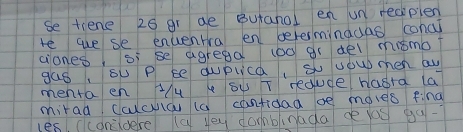 Se tiene 26 gr de Butanol en un recipien
te que se enuentra en determinadas condi
ciones, si se agrega 100 gr del mismo
gas, su P se duplica, su volumen au
menta en 1/4 y su T reduce hasta la
mitad, calcular la cantidad de moles fina
les. (considere la ley combinada de los ga-